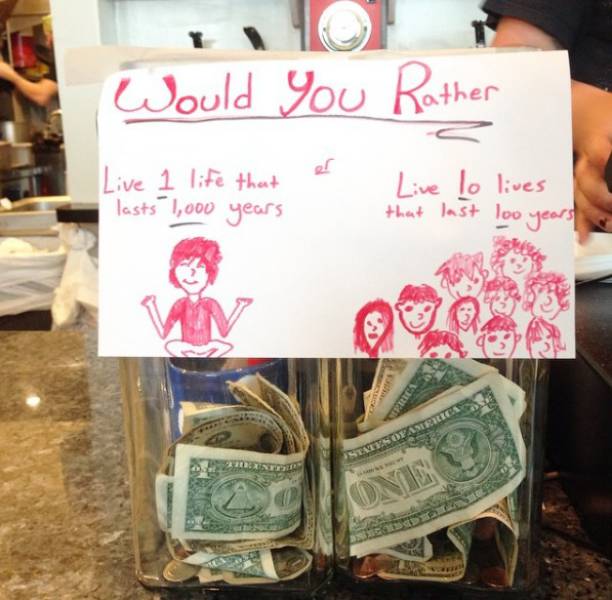 Would You Rather
Live 1 life that
lasts 1,000 years
or
Live 10 lives
that last 100 years
ONE
THE UNITED
STATES OF AMERICA
ONE